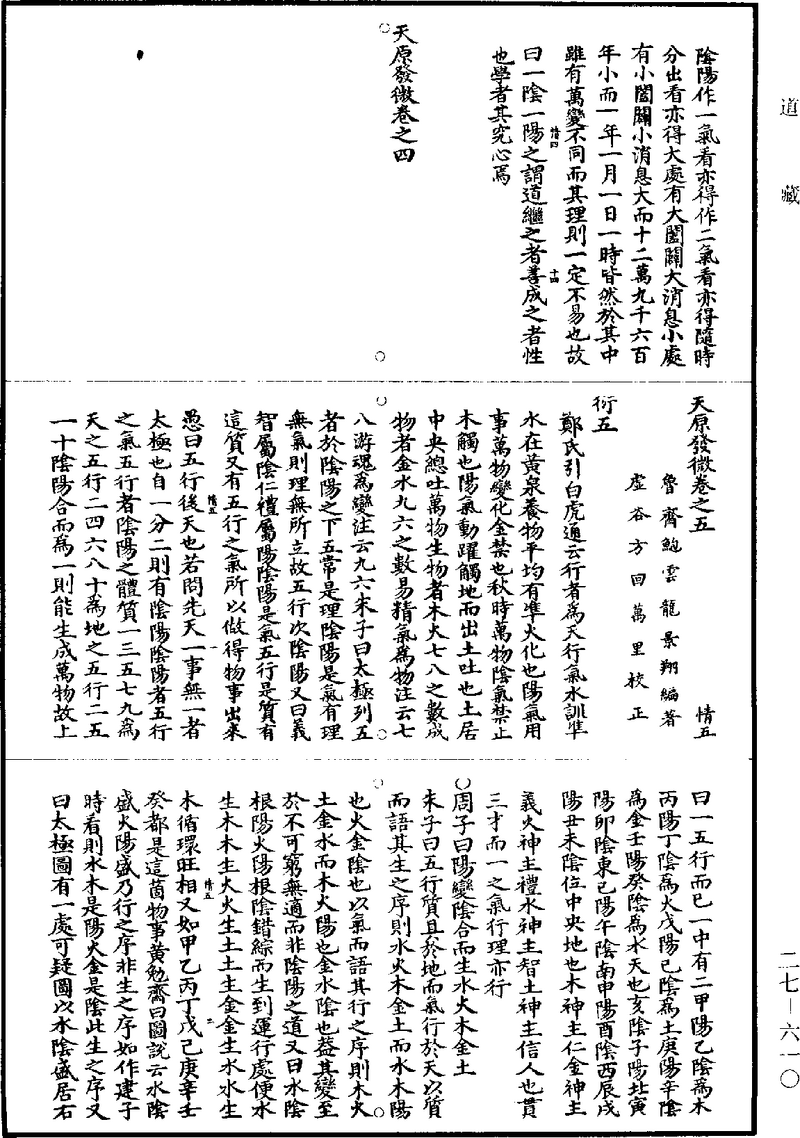 道藏
陰陽作一氣看亦得作二氣看亦得隨時
分出看亦得大處有大闔闢大消息小處
有小闔闢小消息大而十二萬九千六百
年小而一年一月一日一時皆然於其中
雖有萬變不同而其理則一定不易也故
曰一陰一陽之謂道繼之者善成之者性
也學者其究心焉
情四
十四
天原發微卷之四
天原發微卷之五
情五
魯齋鮑雲龍景翔編著
虛谷方回萬里校正
衍五
鄭氏引白虎通云行者為天行氣水訓準
水在黃泉養物平均有準火化也陽氣用
事萬物變化金禁也秋時萬物陰氣禁止
木觸也陽氣動躍觸地而出土吐也土居
中央總吐萬物生物者木火七八之數成
物者金水九六之數易精氣為物注云七
八游魂為變注云九六朱子曰太極列五
者於陰陽之下五常是理陰陽是氣有理
無氣則理無所立故五行次陰陽又曰義
智屬陰仁禮屬陽陰陽是氣五行是質有
這質又有五行之氣所以做得物事出來
愚曰五行後天也若問先天一事無一者
情五
一
太極也自一分二則有陰陽陰陽者五行
之氣五行者陰陽之體質一三五七九為
天之五行二四六八十為地之五行二五
一十陰陽合而為一則能生成萬物故上
曰一五行而已一中有二甲陽乙陰為木
丙陽丁陰為火戊陽己陰為土庚陽辛陰
為金壬陽癸陰為水天也亥陰子陽北寅
陽卯陰東巳陽午陰南申陽酉陰西辰戌
陽丑未陰位中央地也木神主仁金神主
義火神主禮水神主智土神主信人也貫
三才而一之氣行理亦行
周子曰陽變陰合而生水火木金土
朱子曰五行質具於地而氣行於天以質
而語其生之序則水火木金土而水木陽
也火金陰也以氣而語其行之序則木火
土金水而木火陽也金水陰也蓋其變至
於不可窮無適而非陰陽之道又曰水陰
根陽火陽根陰錯綜而生到運行處便水
生木木生火火生土土生金金生水水生
情五
二
木循環旺相又如甲乙丙丁戊己庚辛壬
癸都是這箇物事黃勉齋曰圖說云水陰
盛火陽盛乃行之序非生之序如作建子
時看則水木是陽火金是陰此生之序又
曰太極圖有一處可疑圖以水陰盛居右
二七—六一〇